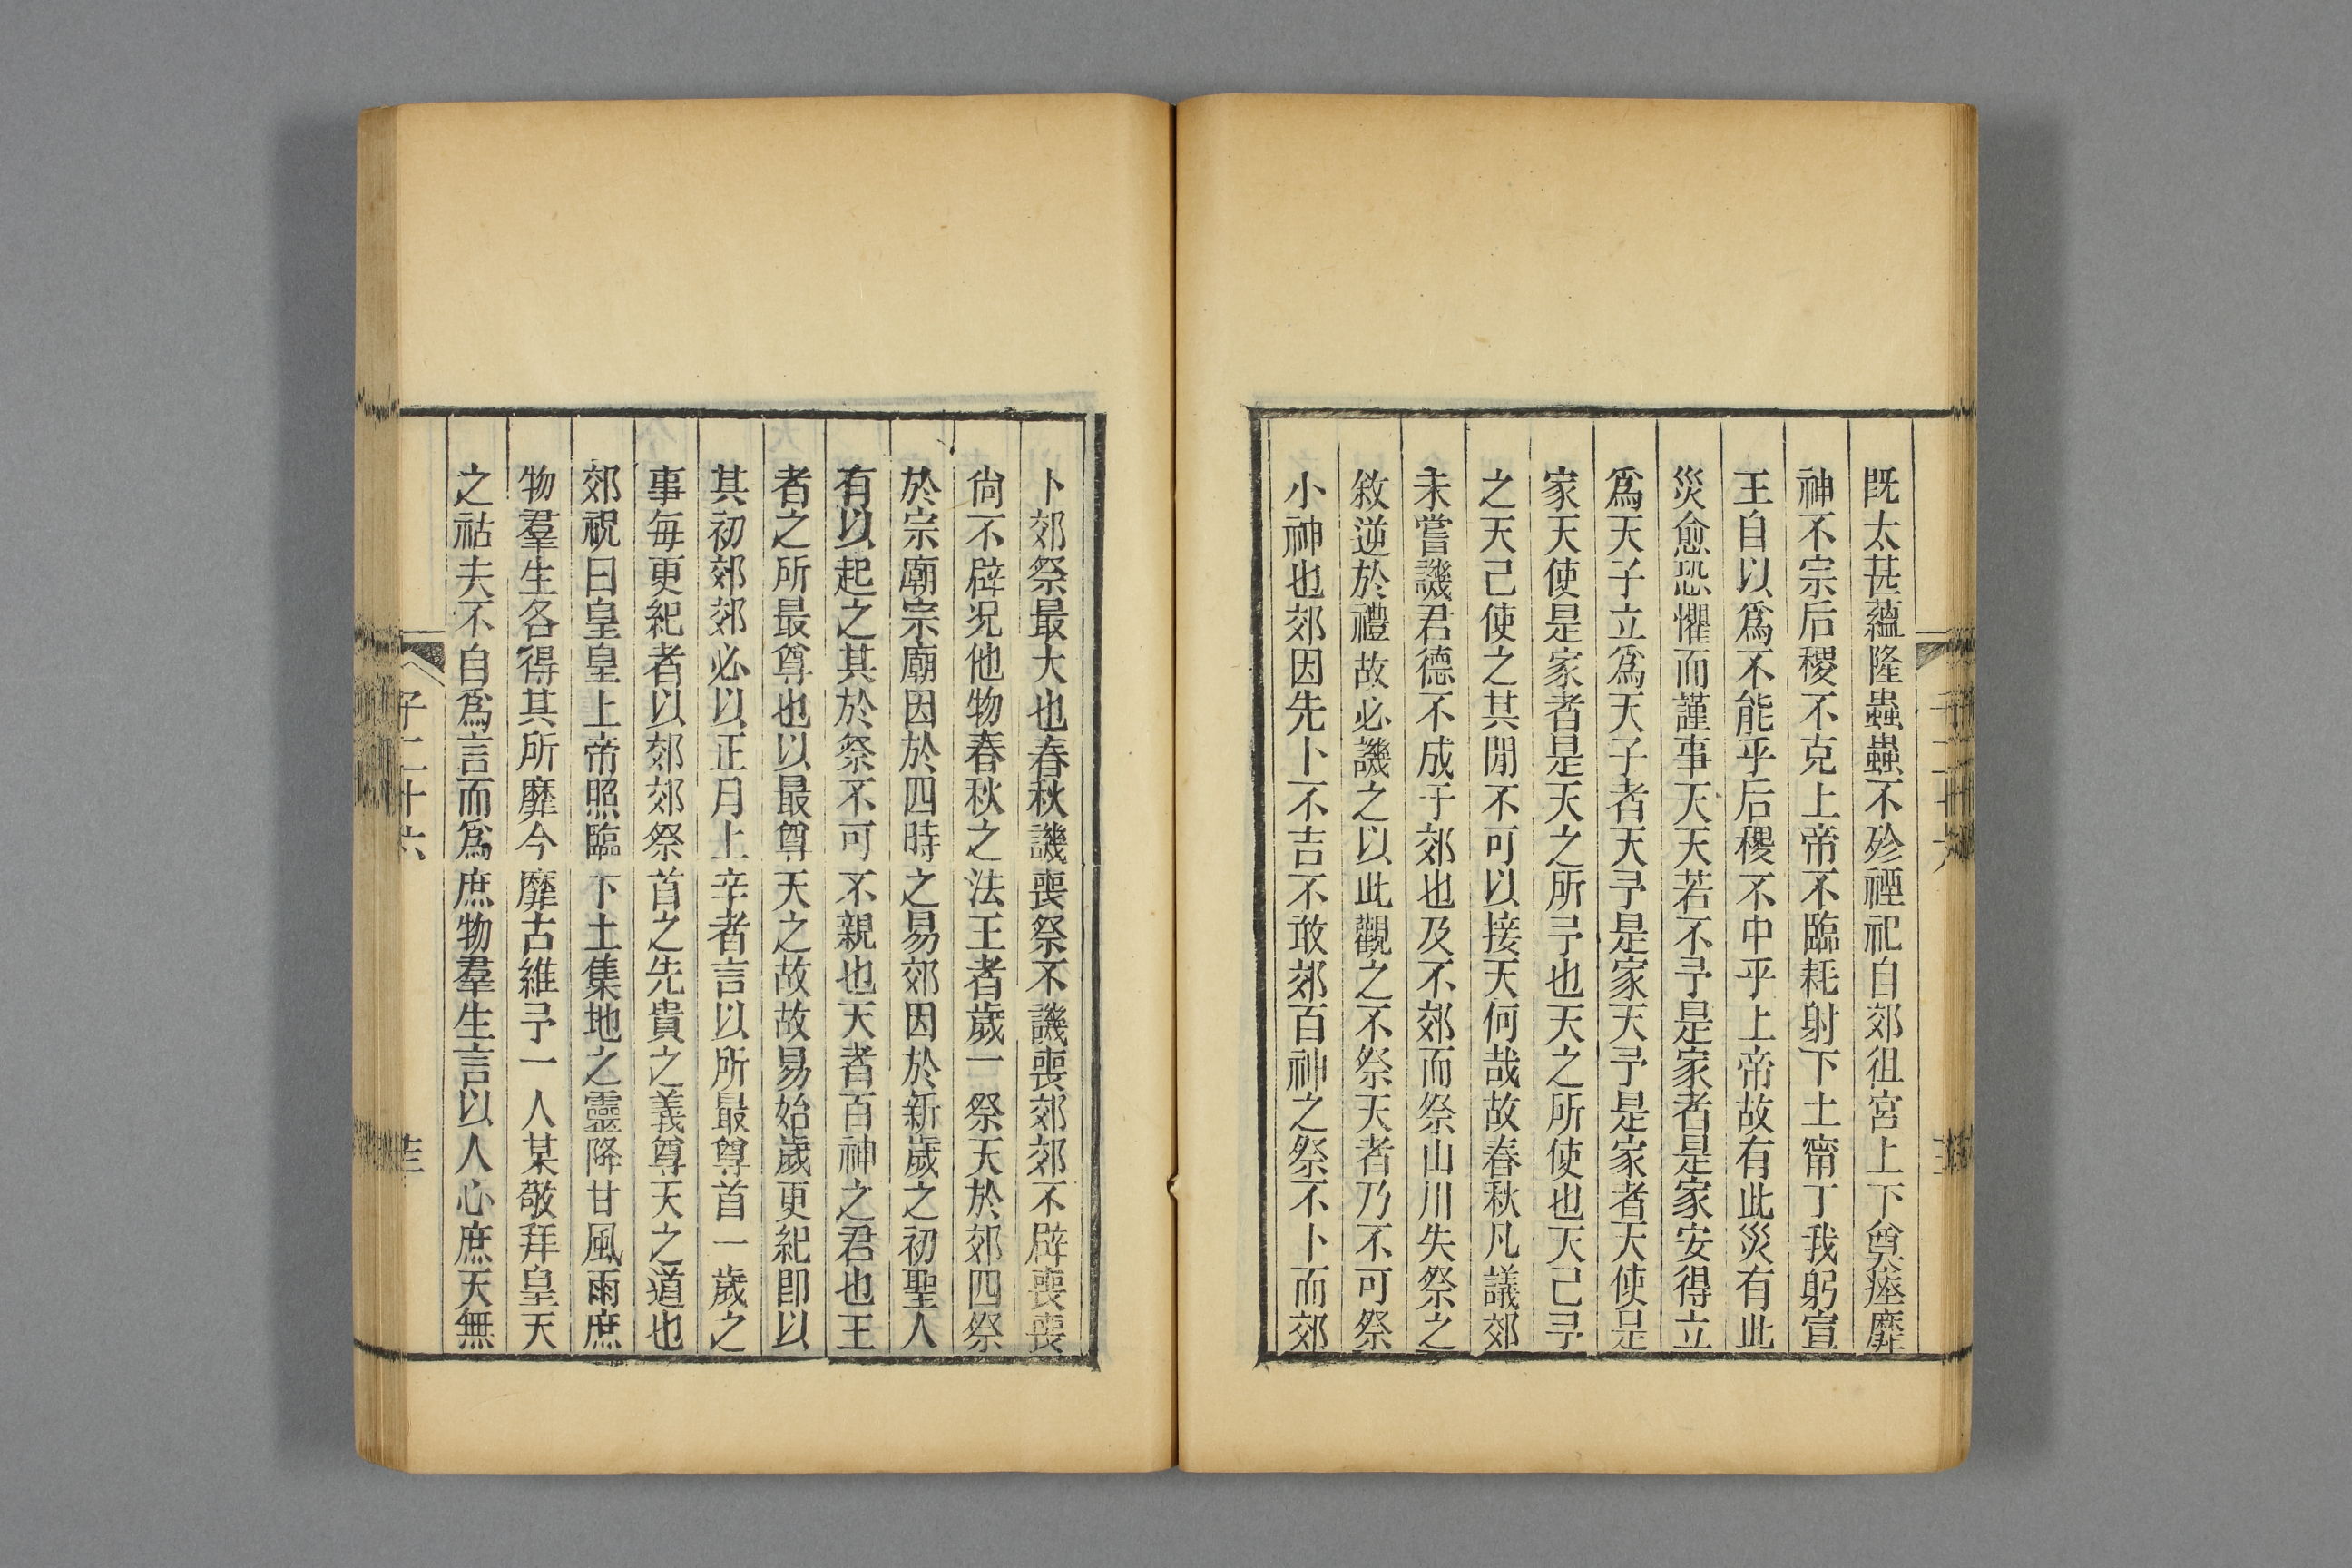 既太甚蘊隆蟲蟲不殄禋祀自郊徂宮上下奠瘞靡
神不宗后稷不克上帝不臨耗射下土甯丁我躬宣
王自以爲不能乎后稷不中乎上帝故有此災有此
災愈恐懼而謹事天天若不予是家者是家安得立
爲天子立爲天子者天予是家天予是家者天使是
家天使是家者是天之所予也天之所使也天已予
之天已使之其閒不可以接天何哉故春秋凡議郊
未嘗譏君德不成于郊也及不郊而祭山川失祭之
敘逆於禮故必譏之以此觀之不祭天者乃不可祭
小神也郊因先卜不吉不敢郊百神之祭不卜而郊
卜郊祭最大也春秋譏喪祭不譏喪郊郊不辟喪喪
尙不辟況他物春秋之法王者歲一祭天於郊四祭
於宗廟宗廟因於四時之易郊因於新歲之初聖人
有以起之其於祭不可不親也天者百神之君也王
者之所最尊也以最尊天之故故易始歲更紀卽以
其初郊郊必以正月上辛者言以所最尊首一歲之
事每更紀者以郊郊祭首之先貴之義尊天之道也
郊祝曰皇皇上帝照臨下土集地之靈降甘風雨庶
物羣生各得其所靡今靡古維予一人某敬拜皇天
之祜夫不自爲言而爲庶物羣生言以人心庶天無
子二十六